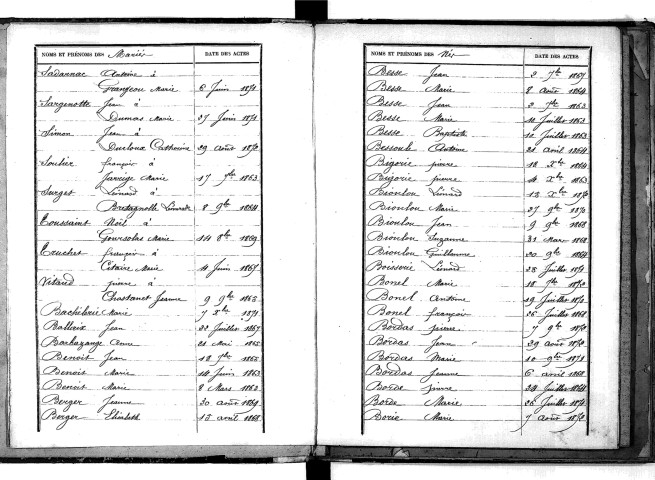 NOMS ET PRÉNOMS DES Mariés DATE DES ACTES
Sadarnac Antoine à
Granjeou Marie 6 Juin 1871
Sargenotte Jean à
Dumas Marie 27 Juin 1871
Simon Jean à
Ducloux Catherine 29 Aout 1872
Soulier françois à
Jarrige Marie 17 7bre 1863
Surget Léonard à
Bretagnolle Léonarde 8 9bre 1864
Toussaint Noël à
Goursolas Marie 14 8bre 1869
Truchet françois à
Citaire Marie 4 Juin 1867
Vitaud pierre à
Chastanet Jeanne 9 9bre 1863
Bachelerie Marie 7 Xbre 1871
Ballerix Jean 22 Juillet 1867
Barbazange Anne 21 Mai 1865
Benoit Jean 12 7bre 1865
Benoit Marie 14 Juin 1863
Benoit Marie 8 Mars 1862
Berger Jeanne 30 Aout 1869
Berger Elisabeth 13 Aout 1868
NOMS ET PRÉNOMS DES Nés DATE DES ACTES
Besse Jean 2 7bre 1867
Besse Marie 8 Aout 1864
Besse Jean 2 7bre 1863
Besse Marie 11 Juillet 1863
Besse Baptiste 12 Juillet 1863
Bessoule Antoine 21 Avril 1864
Bigorie pierre 12 Xbre 1864
Bigorie pierre 4 Xbre 1863
Bioulou Léonard 13 Xbre 1870
Bioulou Marie 27 9bre 1870
Bioulou Jean 9 9bre 1868
Bioulou Suzanne 31 Mars 1868
Bioulou Guillaume 20 9bre 1864
Boisserie Léonard 28 Juillet 1871
Bonel Marie 18 7bre 1872
Bonel Antoine 19 Juillet 1870
Bonel françois 26 Juillet 1868
Bordas pierre 7 9bre 1872
Bordas Jean 29 Aout 1872
Bordas Marie 10 9bre 1871
Bordas Jeanne 6 Avril 1868
Borde pierre 24 Juillet 1861
Borde Marie 26 Juillet 1871
Borie Marie 7 Aout 1872